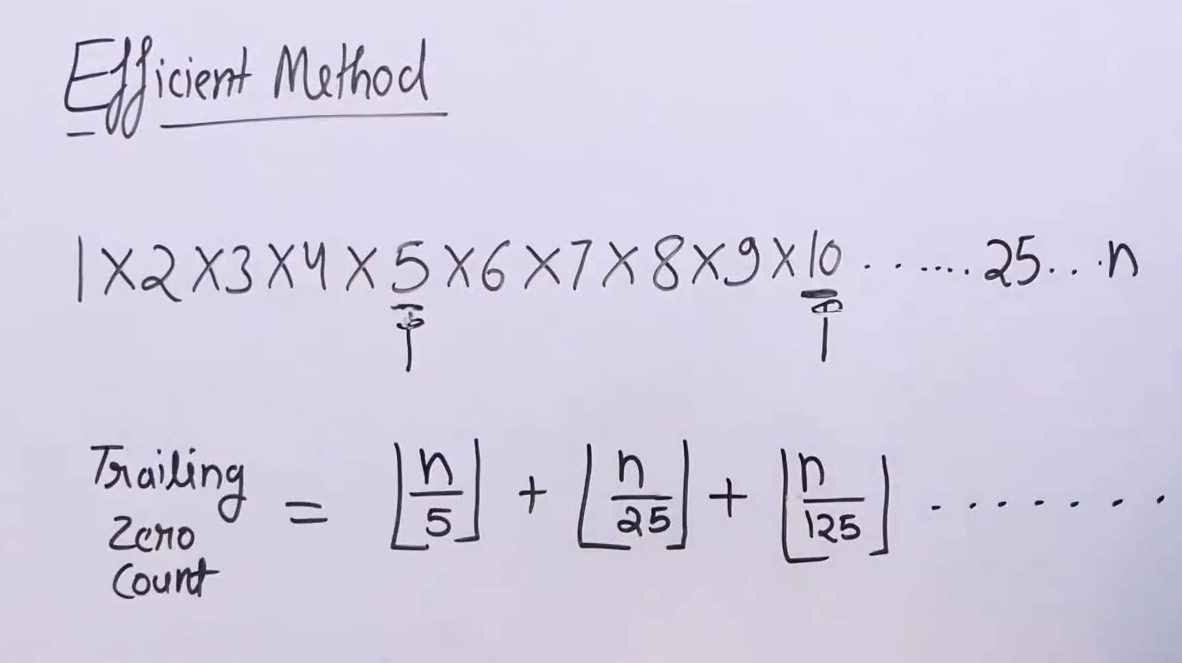 Efficient Method
1×2×3×4×5×6×7×8×9×10.......25...n
Trailing Zero Count = ⌊n/5⌋ + ⌊n/25⌋ + ⌊n/125⌋ .......